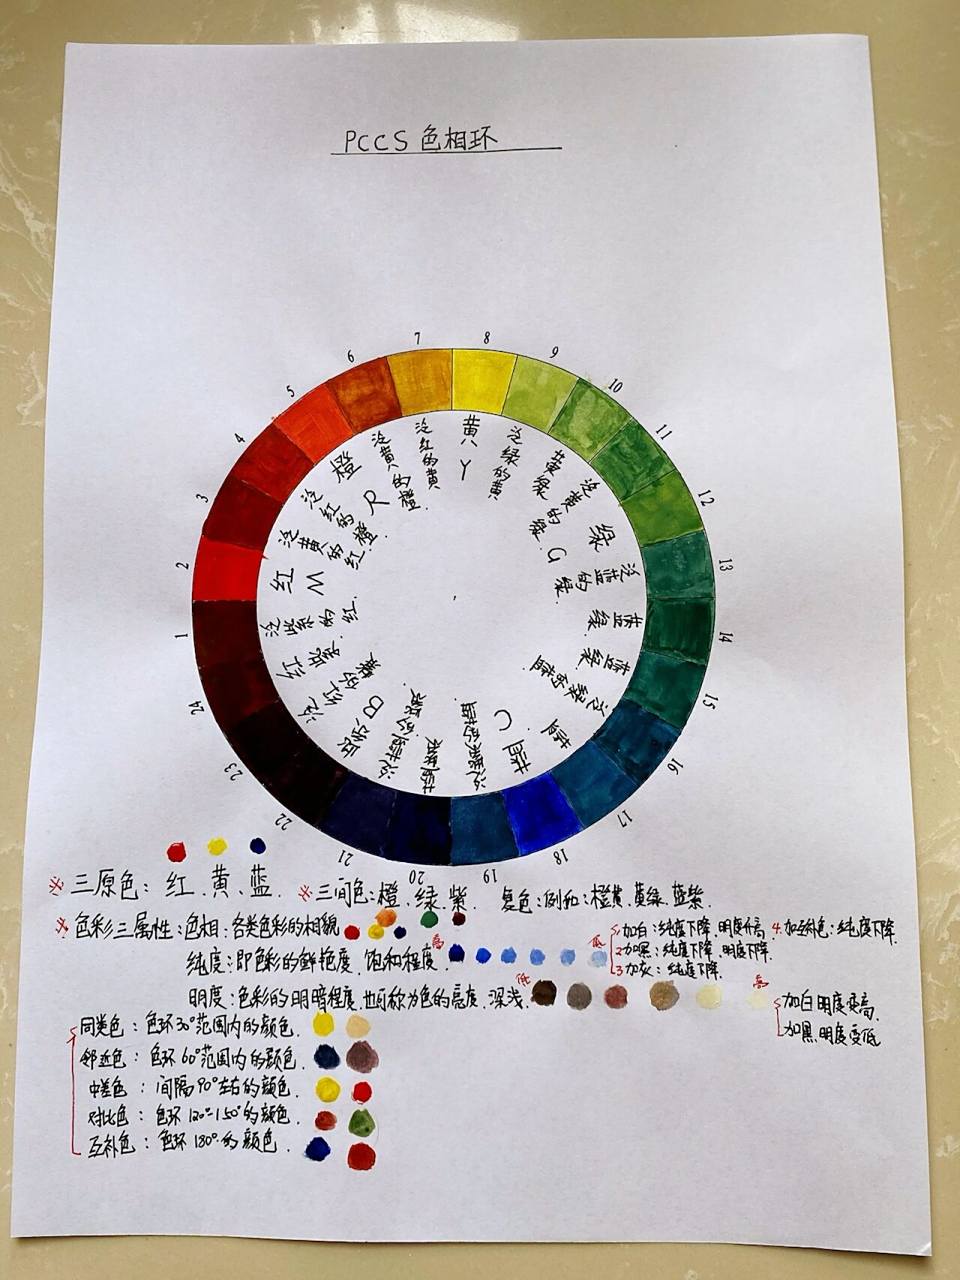 PCCS 色相环
7
8
9
10
11
12
13
14
15
16
17
18
19
20
21
22
23
24
1
2
3
4
5
6
黄
Y
泛绿的黄
黄绿
泛黄的绿
绿
G
泛蓝的绿
蓝绿
蓝绿
泛绿的蓝
蓝
C
蓝
泛紫的蓝
蓝紫
泛蓝的紫
B
泛紫的红
红
M
泛黄的红
泛红的橙
橙
R
泛黄的橙
泛红的黄
※ 三原色: 红、黄、蓝.
※ 三间色:橙.绿.紫.
复色:例如:橙黄.黄绿.蓝紫.
※ 色彩三属性:色相:各类色彩的相貌
纯度:即色彩的鲜艳度.饱和程度.
高
低
1.加白:纯度下降.明度升高.
2加黑:纯度下降.明度下降.
3加灰:纯度下降.
4.加补色:纯度下降.
明度:色彩的明暗程度.也可称为色的亮度.深浅.
低
高
加白明度变高.
加黑明度变低
同类色:色环30°范围内的颜色.
邻近色:色环60°范围内的颜色.
中差色:间隔90°左右的颜色.
对比色:色环120°-150°的颜色.
互补色:色环180°的颜色.